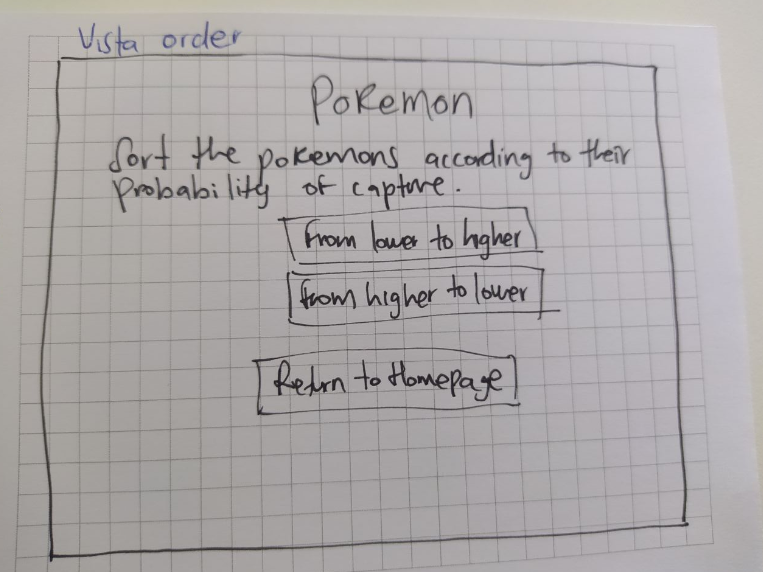 Vista order
Pokemon
Sort the pokemons according to their
probability of capture.
from lower to higher
from higher to lower
Return to Homepage